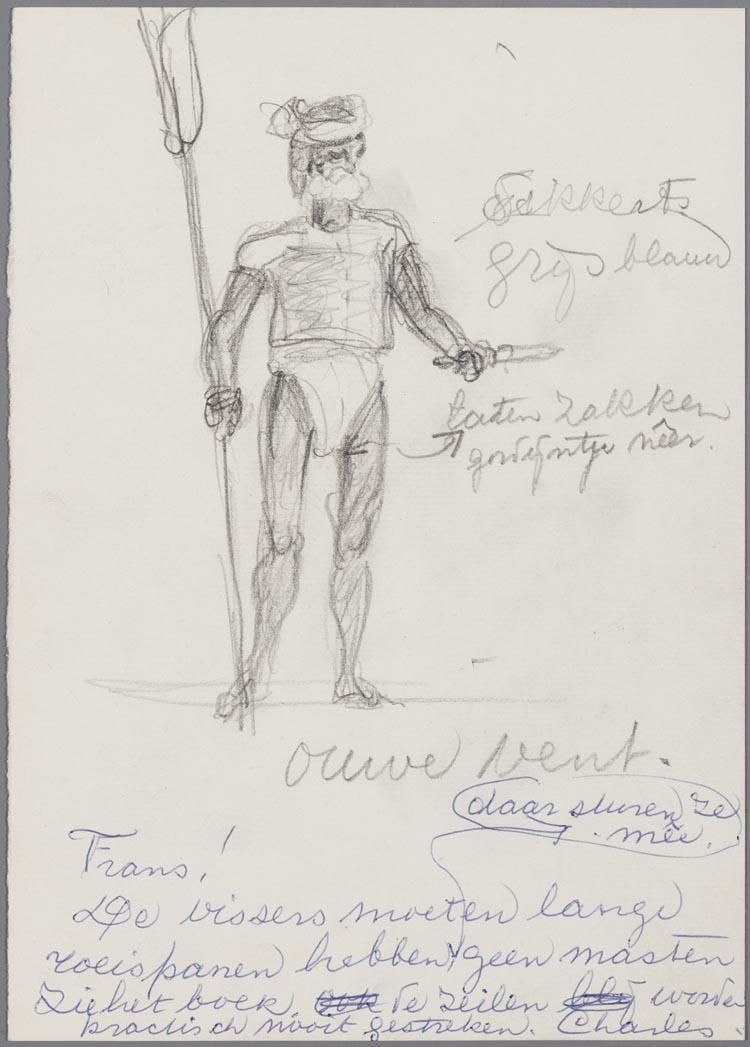 grijs blauw
laten zakken
gordijntje neer.
ouwe vent.
daar sturen ze
mêe.
Frans!
De vissers moeten lange
roeispanen hebben, geen masten
Zie het boek, ook de zeilen worden
practisch nooit gestreken. Charles.